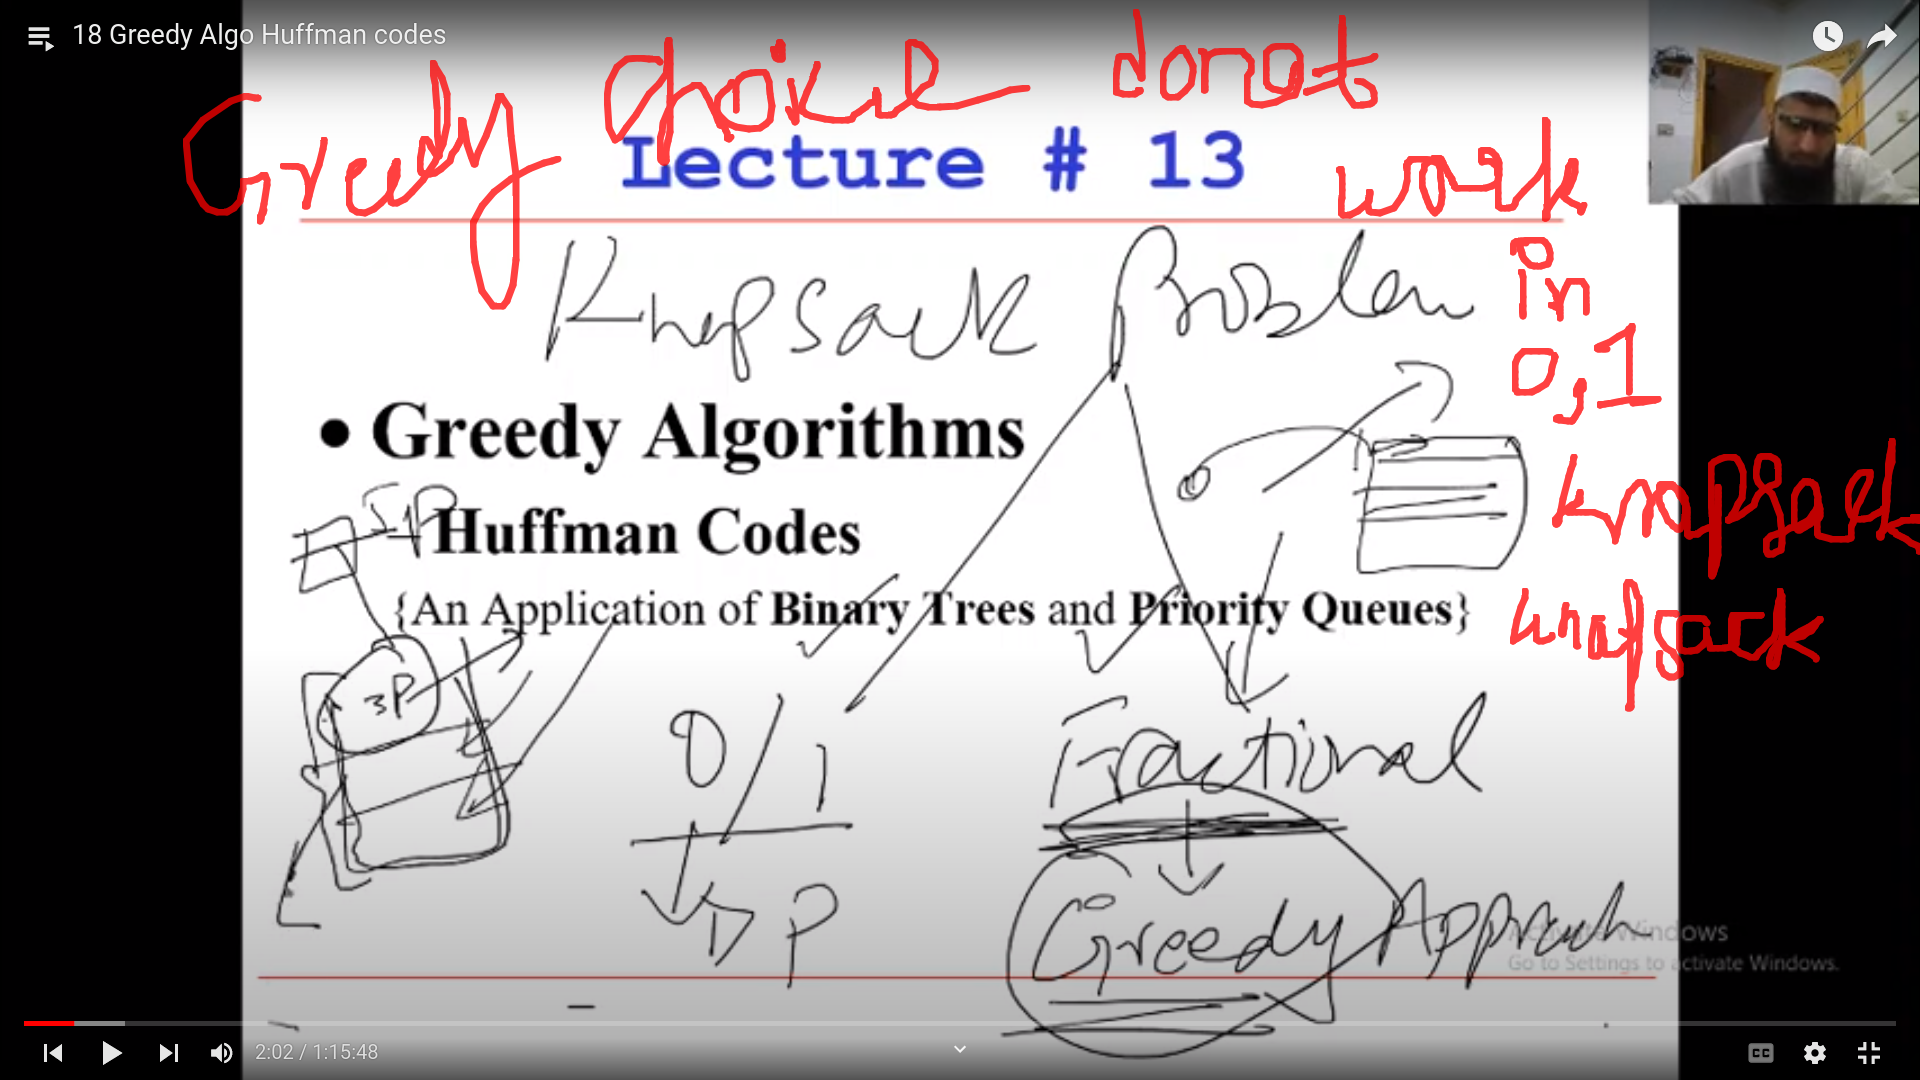 18 Greedy Algo Huffman codes
Greedy choice donot
work
in
0,1
knapsack
knapsack
Lecture # 13
Knapsack Problem
• Greedy Algorithms
Huffman Codes
{An Application of Binary Trees and Priority Queues}
3P
0/1
Fractional
DP
Greedy Approach
Activate Windows
Go to Settings to activate Windows.
2:02 / 1:15:48
CC